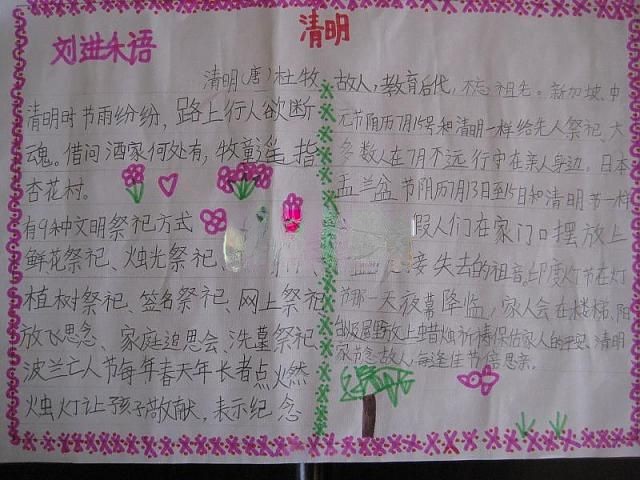 清明
刘进朱语
清明(唐)杜牧
清明时节雨纷纷,路上行人欲断
魂。借问酒家何处有,牧童遥指
杏花村。
有9种文明祭祀方式
鲜花祭祀、烛光祭祀、
植树祭祀、签名祭祀、网上祭祀
放飞思念、家庭追思会、洗墓祭祀
波兰亡人节每年春天年长者点燃
烛灯让孩子敬献,表示纪念
故人,教育后代,不忘祖先。新加坡、中
元节阴历7月15号和清明一样给先人祭祀、大
多数人在7月不远行守在亲人身边。日本
盂兰盆节阴历7月13日至15日和清明节一样
假人们在家门口摆放上
接失去的祖音。印度灯节在灯
节那一天夜幕降临,家人会在楼梯、阳
台及屋野放上蜡烛祈祷保估家人的平安、清明
家家念故人,每逢佳节倍思亲。